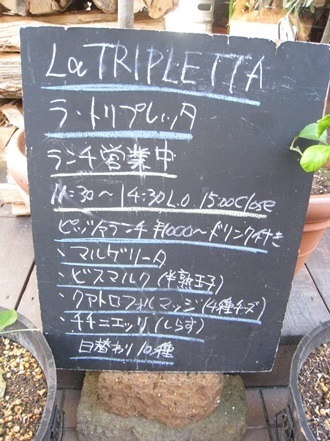 La TRIPLETTA
ラ・トリプレッタ
ランチ営業中
11:30〜14:30L.O 15:00Close
ピッツァランチ ¥1000〜ドリンク付き
・マルゲリータ
・ビスマルク(半熟玉子)
・クァトロフォルマッジ(4種チーズ)
・チチニエッリ(しらす)
日替わり10種